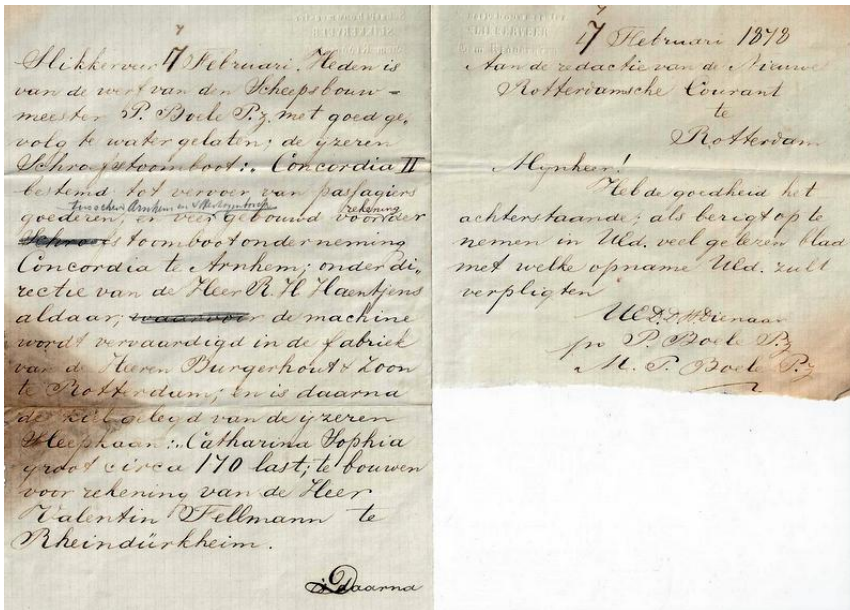 Slikkerveer 17 Februari. Heden is
van de werf van den Scheepsbouw=
meester P. Boele P.z. met goed ge„
volg te water gelaten; de ijzeren
Schroefstoomboot:. Concordia II
bestemd tot vervoer van passagiers
tusschen Arnhem en
goederen, en veer gebouwd voor rekening der
stoombootonderneming
Concordia te Arnhem; onder di„
rectie van de Heer R. H Haentjens
aldaar; de machine
wordt vervaardigd in de fabriek
van de Heeren Burgerhout & Zoon
te Rotterdam; en is daarna
de kiel gelegd van de ijzeren
Sleepkaan:. Catharina Sophia
groot circa 170 last; te bouwen
voor rekening van de Heer
Valentin Fellmann te
Rheindürkheim.
Daarna
17 Februari 1878
Aan de redactie van de Nieuwe
Rotterdamsche Courant
te
Rotterdam
Mynheer!
Heb de goedheid het
achterstaande; als berigt op te
nemen in UEd. veel gelezen blad
met welke opname UEd. zult
verpligten
UEd. D. W. Dienaar
po P. Boele P.z
M. P. Boele P.z